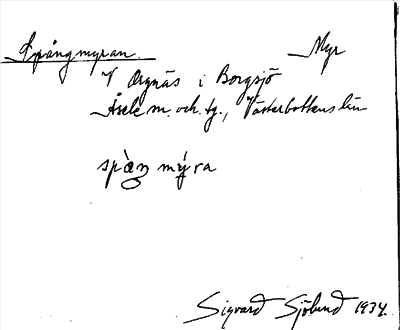 Spångmyran. Myr
V Örgnäs i Borgsjö
Åsele m. och tg., Västerbottens län
spån mýra
Sigvard Sjölund 1934.